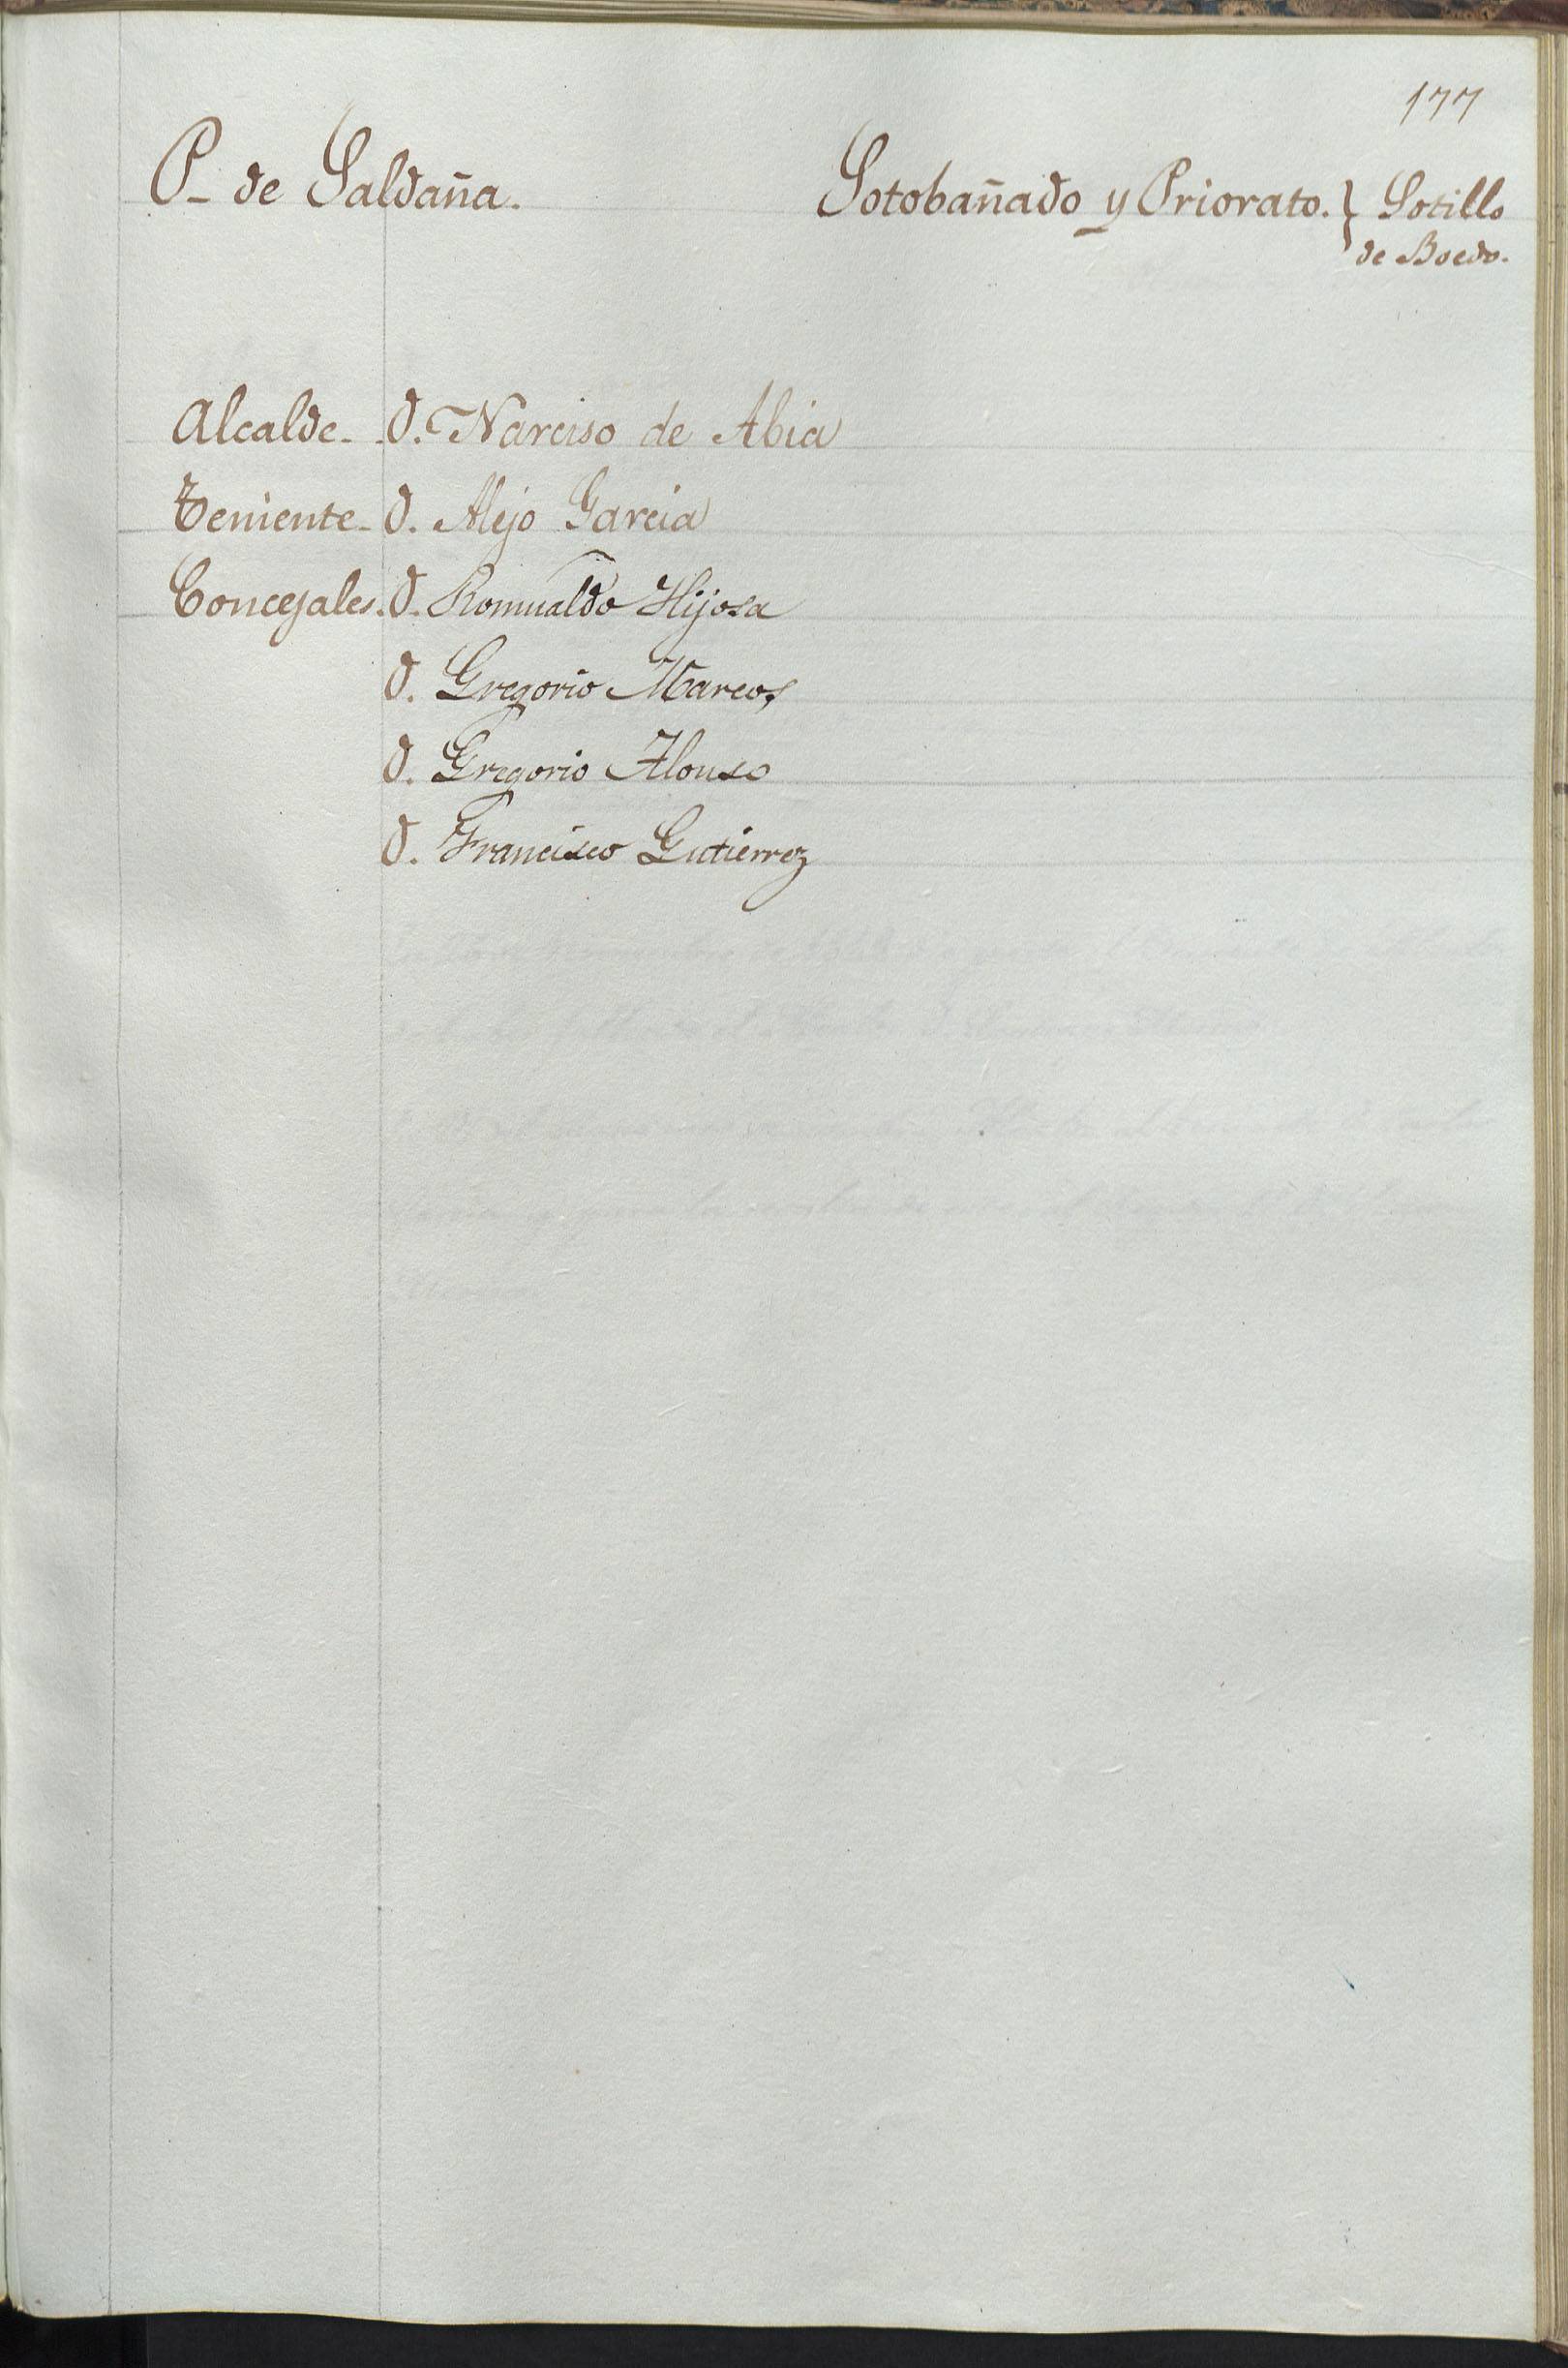 177
P_ de Saldaña. Sotobañado y Priorato. } Sotillo
de Boedo.
Alcalde_ D. Narciso de Abia
Teniente_ D. Alejo Garcia
Concejales. D. Romualdo Hijosa
D. Gregorio Marcos
D. Gregorio Alonso
D. Francisco Gutierrez